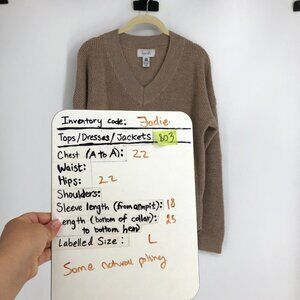 Inventory code: Jodie
Tops/Dresses/Jackets 803
Chest (A to A): 22
Waist:
Hips: 22
Shoulders:
Sleeve length (from armpit): 18
Length (bottom of collar): 25
to bottom hem)
Labelled Size: L
Some natural pilling